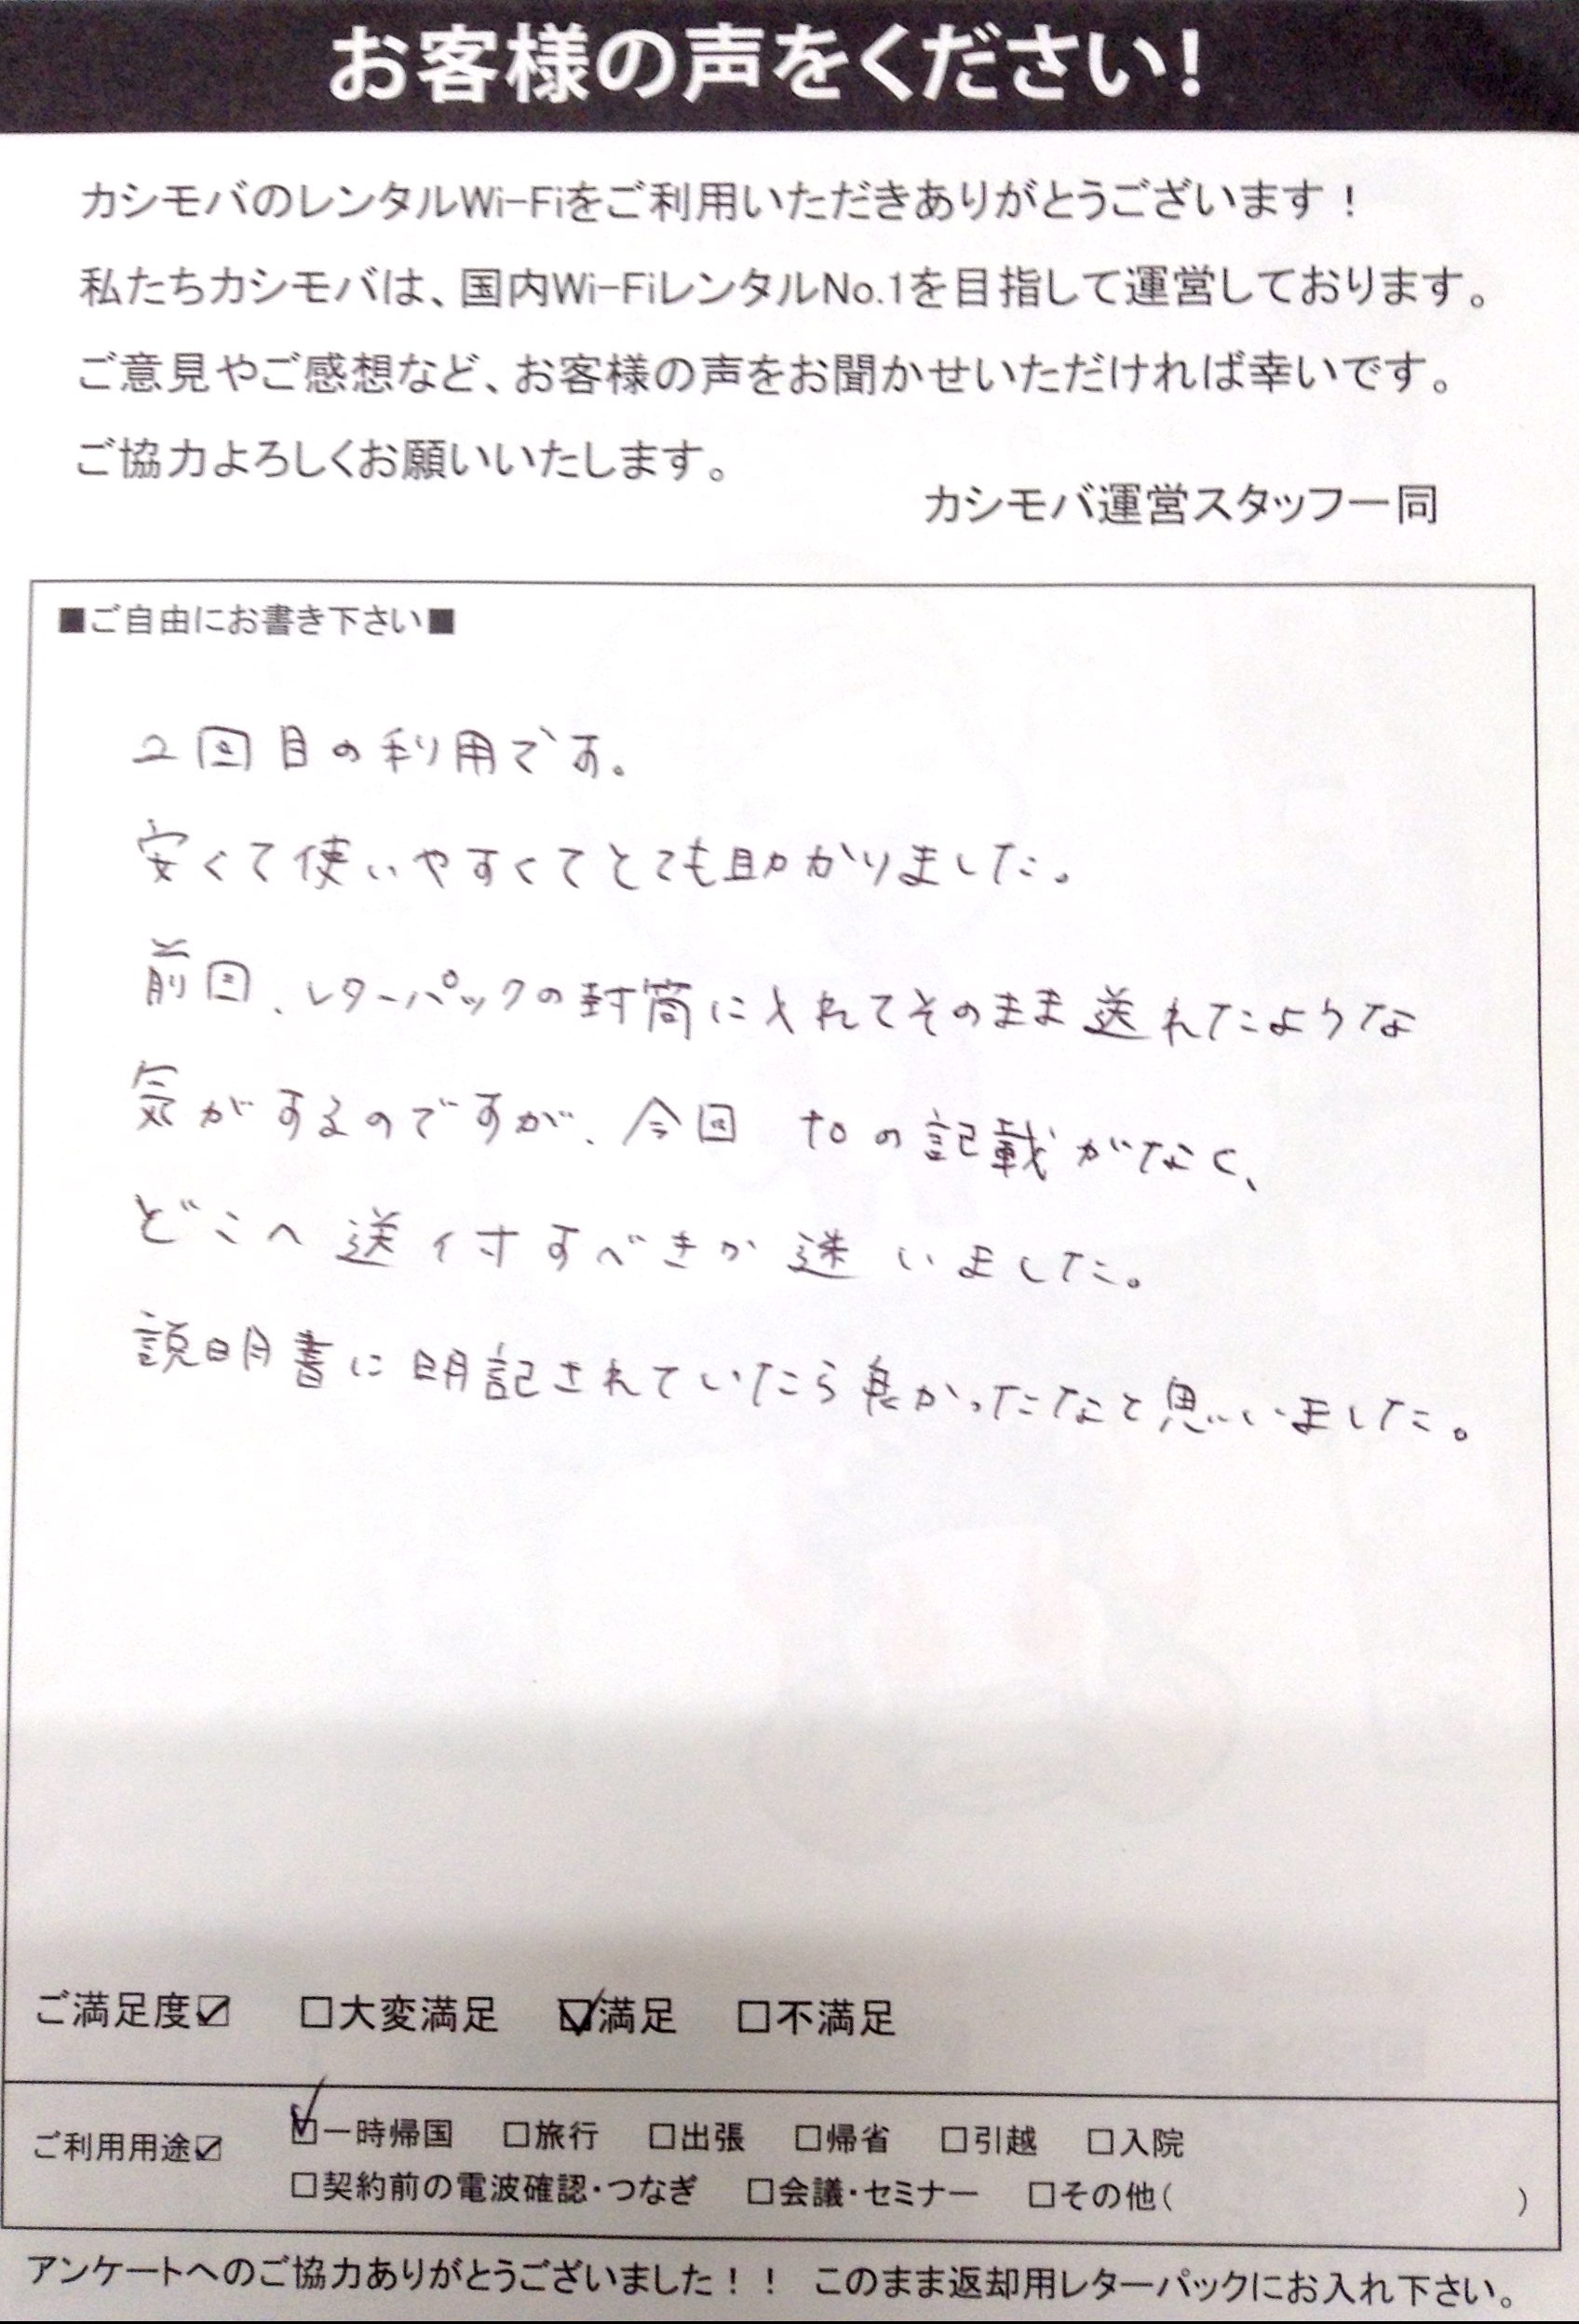 お客様の声をください!
カシモバのレンタルWi-Fiをご利用いただきありがとうございます！
私たちカシモバは、国内Wi-FiレンタルNo.1を目指して運営しております。
ご意見やご感想など、お客様の声をお聞かせいただければ幸いです。
ご協力よろしくお願いいたします。
カシモバ運営スタッフ一同
■ご自由にお書き下さい■
2回目の利用です。
安くて使いやすくてとても助かりました。
前回、レターパックの封筒に入れてそのまま送れたような
気がするのですが、今回 toの記載がなく、
どこへ送付すべきか迷いました。
説明書に明記されていたら良かったなと思いました。
ご満足度☑ □大変満足 ☑満足 □不満足
ご利用用途☑ ☑一時帰国 □旅行 □出張 □帰省 □引越 □入院
□契約前の電波確認・つなぎ □会議・セミナー □その他( )
アンケートへのご協力ありがとうございました！！ このまま返却用レターパックにお入れ下さい。